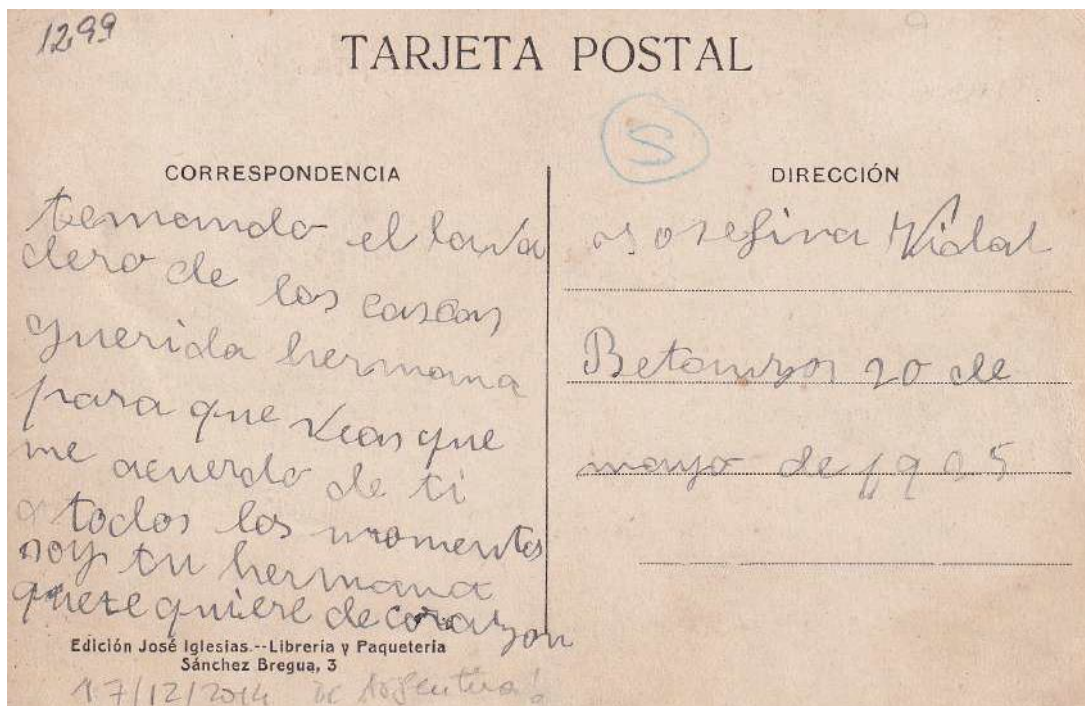 1299
TARJETA POSTAL
S
CORRESPONDENCIA
temando el lava
dero de las cascas
querida hermana
para que veas que
me acuerdo de ti
a todos los momentos
soy tu hermana
que te quiere de corazon
Edición José Iglesias.--Librería y Paquetería
Sánchez Bregua, 3
17/12/2014 De Argentina!
DIRECCIÓN
a Josefina Vidal
Betanzos 20 de
mayo de 1905